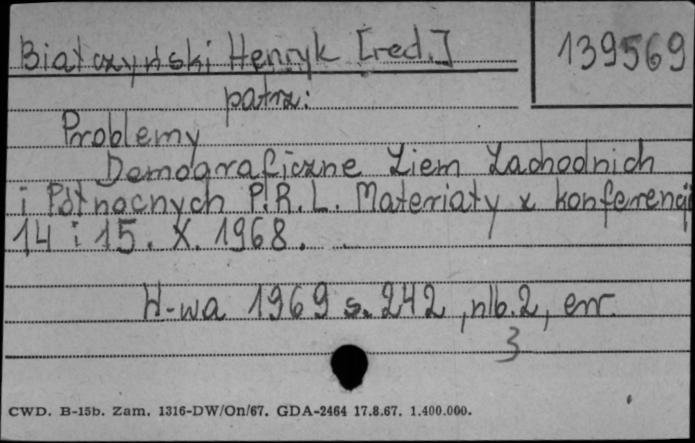 Białczyński Henryk [red.]
139569
patrz:
Problemy
Demograficzne Ziem Zachodnich
i Północnych P.R.L. Materiały z konferencji
14 i 15. X. 1968.
W-wa 1969 s. 242, nlb. 2, err.
3
CWD. B-15b. Zam. 1316-DW/On/67. GDA-2464 17.8.67. 1.400.000.